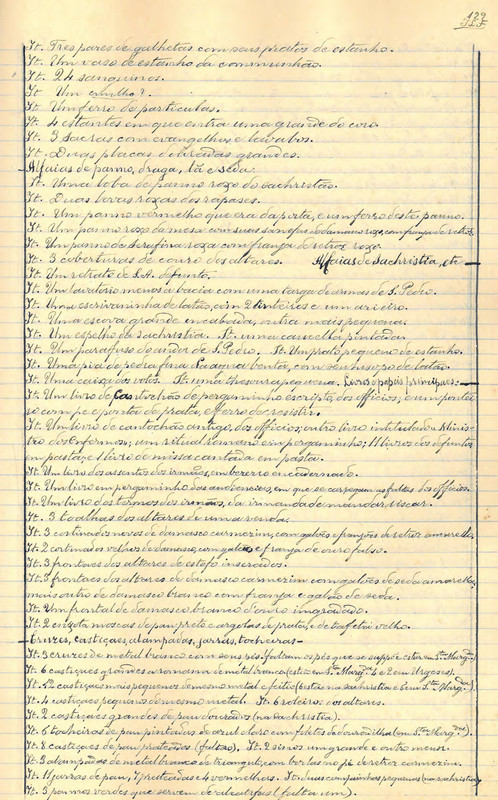 122
It. Tres pares de galhetas com seus pratos de estanho.
It. Um vaso de estanho da communhão.
It. 24 sanguinos.
It. Um ?
It. Um ferro de particulas.
It. 4 estantes em que entra uma grande do coro.
It. 3 Sacras com evangelhos e lavabos.
It. Duas placas douradas grandes.
Alfaias de panno, draga, lã e seda.
It. Uma loba de panno roxo do sachristão.
It. Duas boras roxas dos rapases.
It. Um panno vermelho que era da porta, e um forro deste panno.
It. Um panno roxo da mesa com suas sanefas de damasco roxo, com franja de retroz.
It. Um panno de serafina roxa com franja de retroz roxo.
It. 3 coberturas de couro dos altares. Alfaias de Sachristia, etc
It. Um retrato de S.A. defunto.
It. Um lavatorio menos a bacia com uma targa de armas de S. Pedro.
It. Uma escrivaninha de latão, com 2 tinteiros e um arieiro.
It. Uma escova grande encabada, outra mais pequena.
It. Um espelho da sachristia. It. uma cancella pintada.
It. Um parafuso do andor de S. Pedro. It. Um prato pequeno de estanho.
It. Uma pia de pedra fina da agua benta, com seu hysope de latão.
It. Uma caixa dos votos. It. uma thesoura pequena. Livros e papeis principaes:
It. Um livro de cantochão de pergaminho escripto, dos officios; e um
so com pe e ponta de prata, e ferro de registir.
It. Um livro de cantochão antigo, dos officios; outro livro intitulado o Minis-
tro dos Enfermos; um ritual romano em pergaminho; 11 livros dos defuntos
em pasta, e 1 livro de missa cantada em pasta.
It. Um livro dos assentos dos irmãos, em bezerro encadernado.
It. Um livro em pergaminho das audiencias, em que se carregam as faltas dos officios.
It. Um livro dos termos dos irmãos, da irmandade mandou riscar.
It. 3 toalhas dos altares de uma renda.
It. 3 cortinados novos de damasco carmezim, com galões e franjões de retroz amarello.
It. 2 cortinados velhos de damasco, com galões e franja de ouro falso.
It. 3 frontaes dos altares de estofo incerados.
It. 3 frontaes dos altares de damasco carmezim com galões de seda amarella,
mais outro de damasco branco com franja e galão de seda.
It. Um frontal de damasco branco d'ouro engradado.
It. 2 enxota moscas de pau preto e argolas de prata, e de taffetá velho.
Cruzes, castiçaes, alampadas, jarras, tocheiras
It. 3 cruzes de metal branco com seus pés. faltam os pés que se suppõe estar em Sta. Margda.
It. 6 castiçaes grandes a romana de metal branco (estão em Sta. Margda. 4 e 2 em Urgeses).
It. 12 castiçaes mais pequenos do mesmo metal e feitio (6 estão na sachristia e 6 em Sta. Margda.).
It. 4 castiçaes pequenos do mesmo metal. It. 6 roleiros dos altares.
It. 2 castiçaes grandes de pau dourados (na sachristia).
It. 6 tocheiras de pau pintadas de azul claro com filetes de dourado ilha (em Sta. Margda.)
It. 8 castiçaes de pau prateados (faltas). It. 2 sinos um grande e outro menor.
It. 3 alampadas de metal branco de triangulo, com borlas no pé de retroz carmezim.
It. 11 jarras de pau, 7 prateadas e 4 vermelhas. It. duas campainhas pequenas (na sachristia)
It. 3 pannos verdes que servem de alcatifas (falta um).